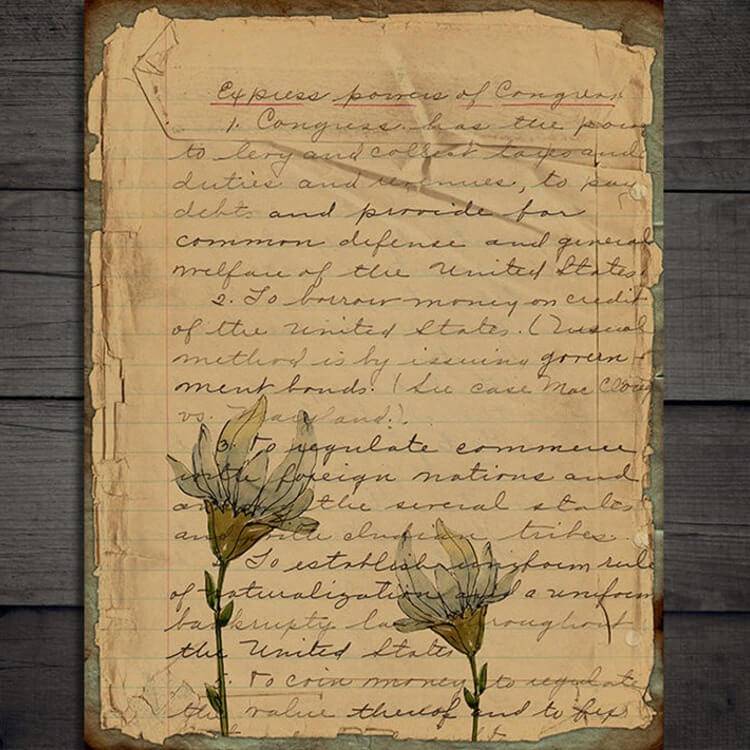 Express powers of Congress
1. Congress has the pow
to levy and collect taxes and
duties and revenues, to pay
debts and provide for
common defense and general
welfare of the United States.
2. To borrow money on credit
of the United States. (Usual
method is by issuing govern-
ment bonds. (See case Mac
vs. Maryland.).
3. To regulate commerce
with foreign nations and
the several states
and with Indian tribes.
To establish uniform rule
of naturalization and a uniform
bankruptcy law throughout
the United States
5. To coin money, to regulate
the value thereof and to fix